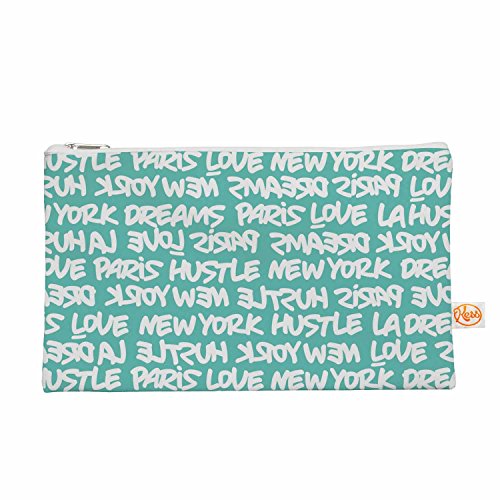 USTLE PARIS LOVE NEW YORK DRE
HUST NEW YORK DREAMS PARIS LOV
W YORK DREAMS PARIS LOVE LA HUST
HUST LA LOVE PARIS DREAMS NEW YORK
OVE PARIS HUSTLE NEW YORK DREA
DREAMS NEW YORK HUSTLE PARIS LOVE
S LOVE NEW YORK HUSTLE LA DREA
DREAMS LA HUSTLE NEW YORK LOVE
USTLE PARIS LOVE NEW YORK DRE
Kess